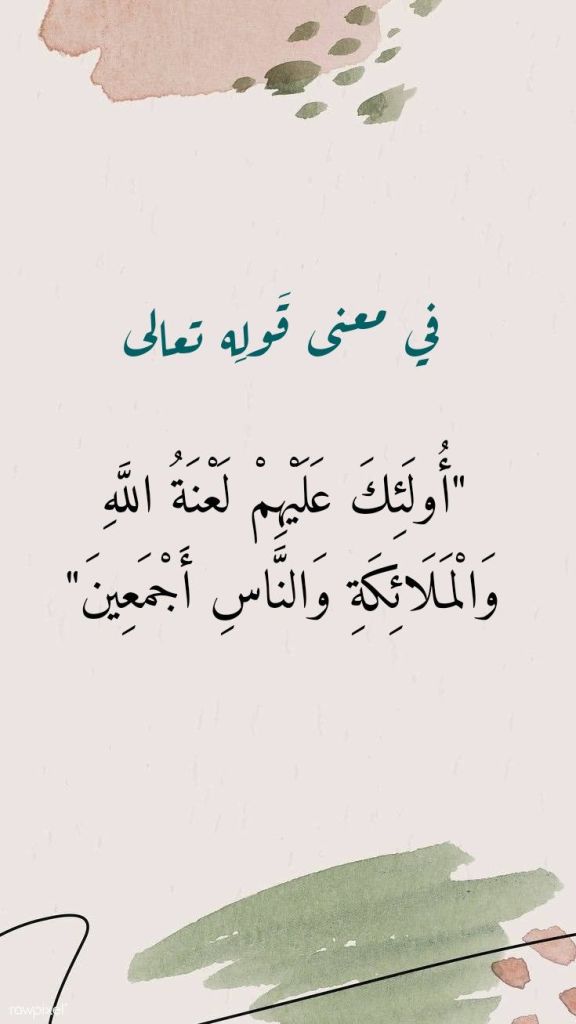 في معنى قَولِه تعالى
"أُولَئِكَ عَلَيْهِمْ لَعْنَةُ اللَّهِ
وَالْمَلَائِكَةِ وَالنَّاسِ أَجْمَعِينَ"
rawpixel